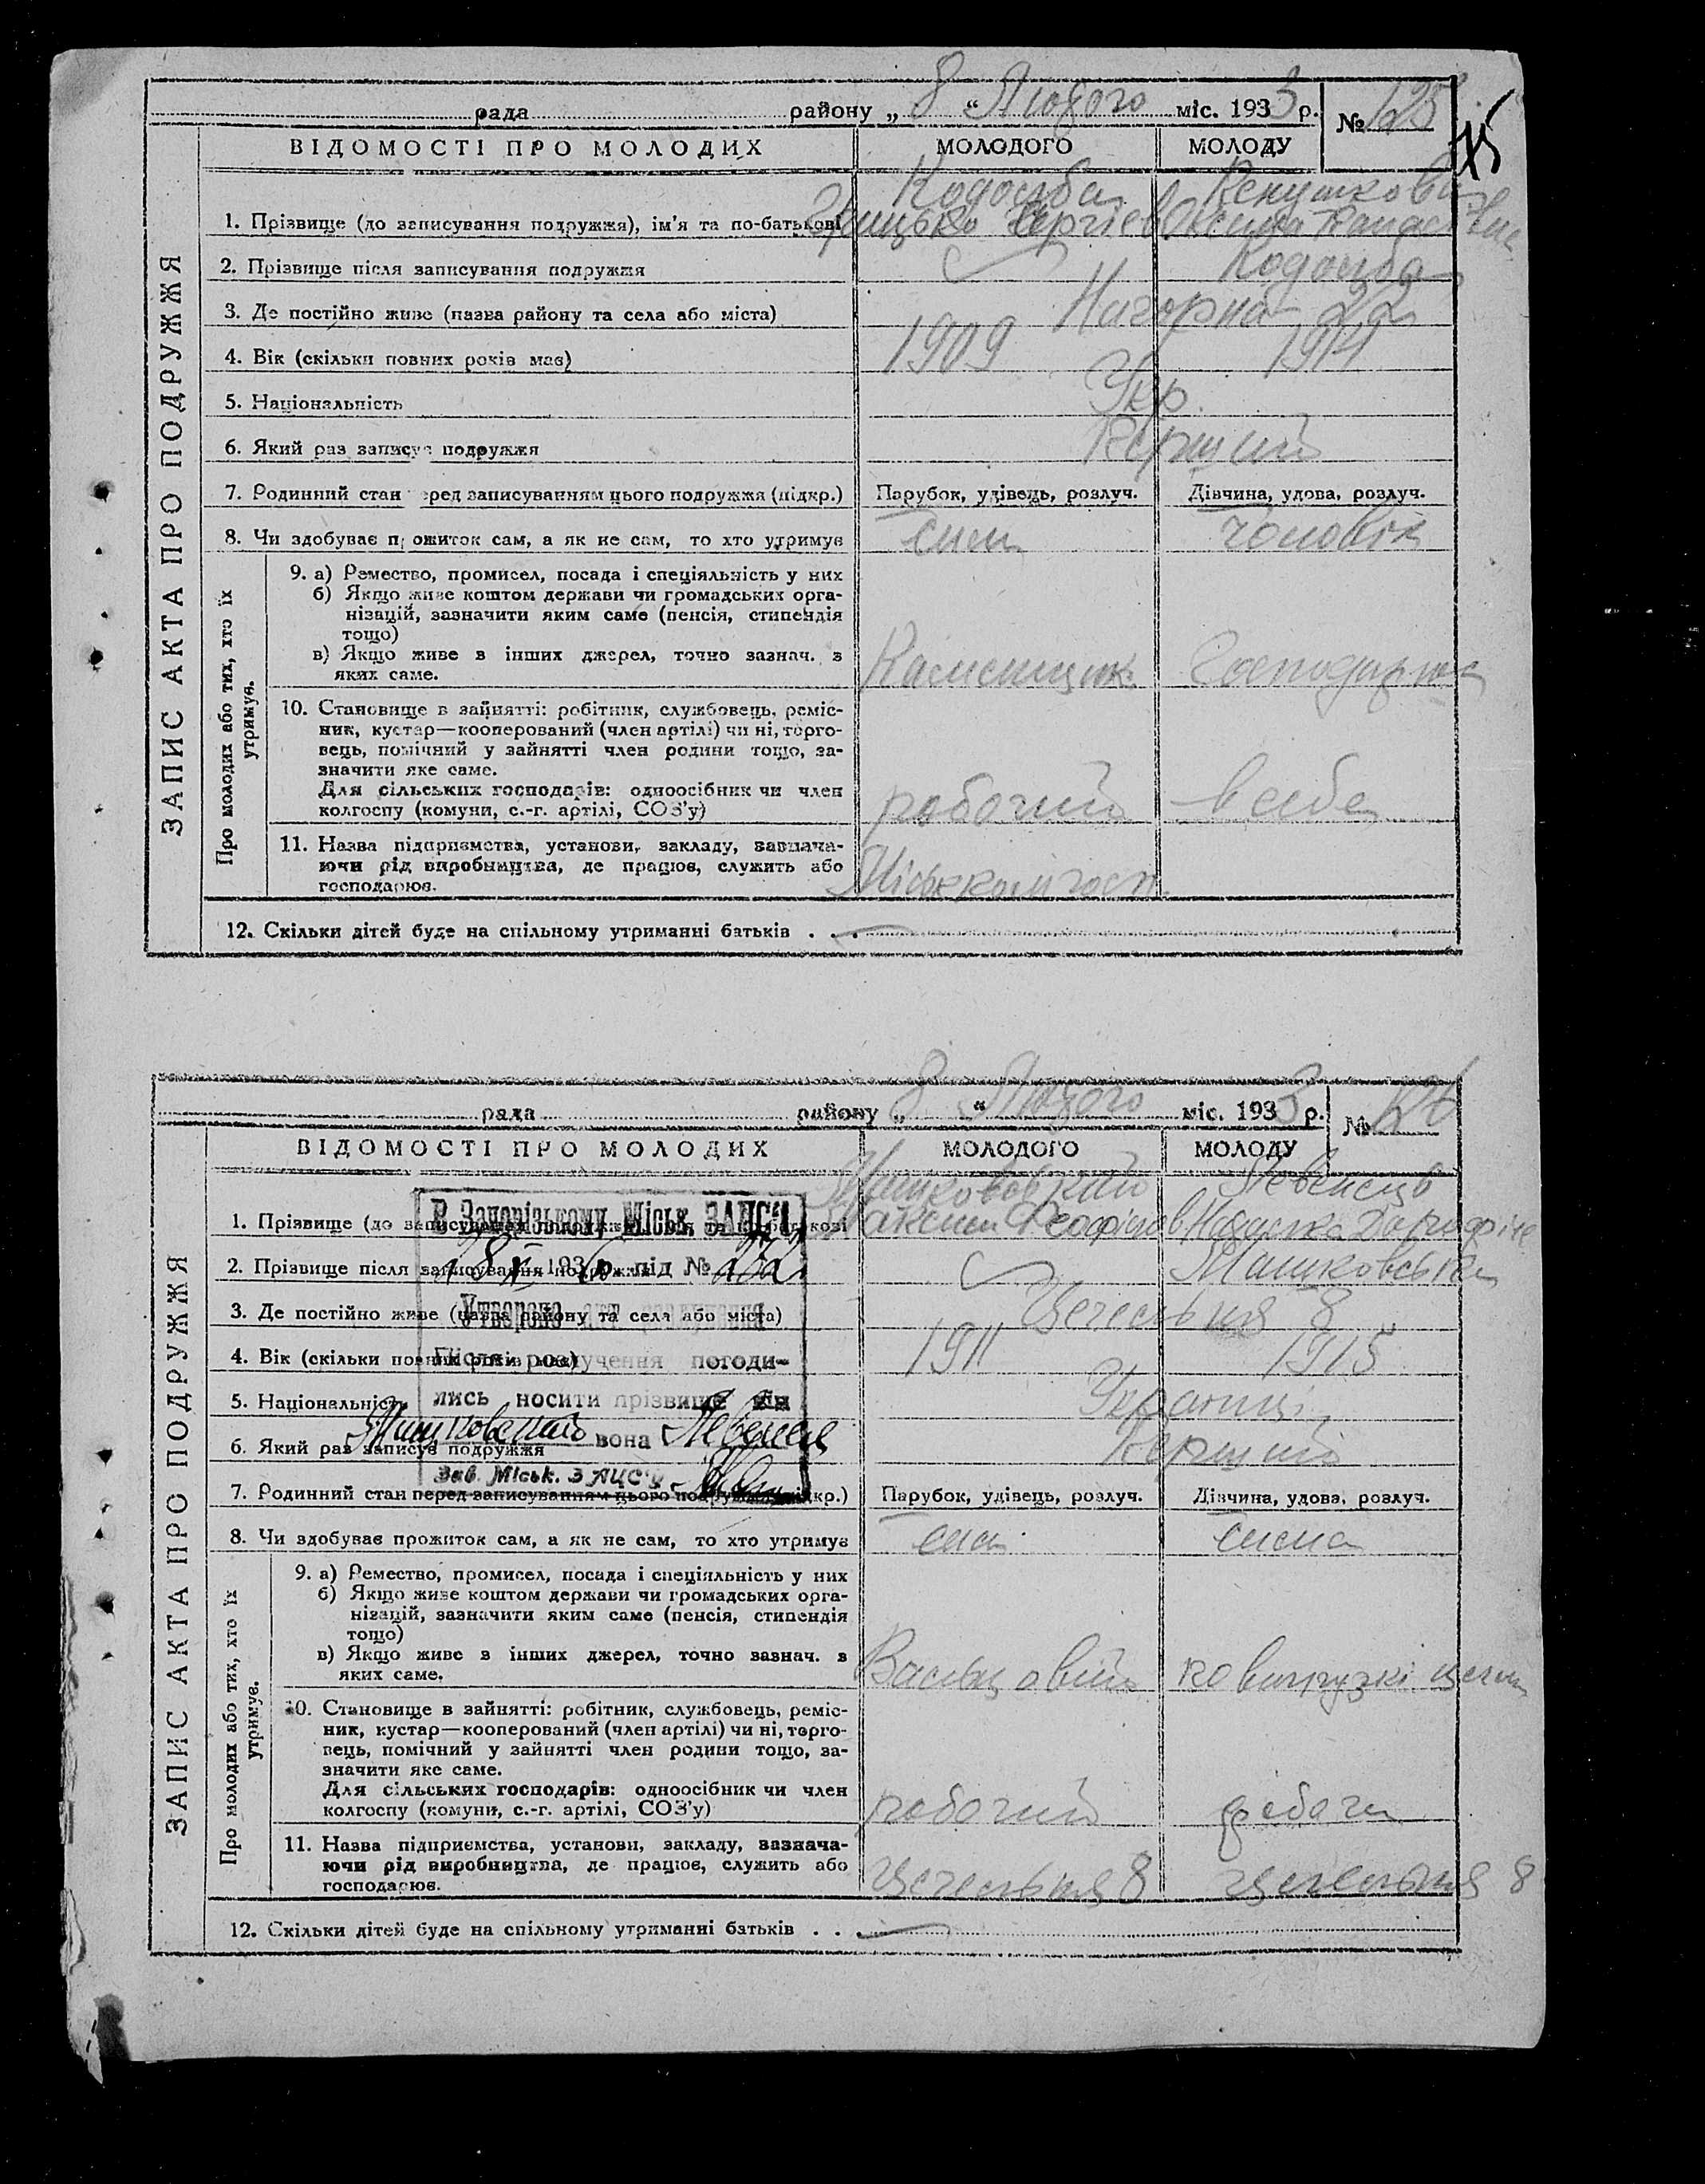 рада району „ 8 “ Лютого міс. 1933 р. № 125
ВІДОМОСТІ ПРО МОЛОДИХ МОЛОДОГО МОЛОДУ
ЗАПИС АКТА ПРО ПОДРУЖЖЯ
1. Прізвище (до записування подружжя), ім'я та по-батькові
Грицько Сергієв Оксина
2. Прізвище після записування подружжя
3. Де постійно живе (назва району та села або міста) Нагорна 22
4. Вік (скільки повних років має) 1909 1914
5. Національність Укр.
6. Який раз записує подружжя Перший
7. Родинний стан перед записуванням цього подружжя (підкр.) Парубок, удівець, розлуч. Дівчина, удова, розлуч.
8. Чи здобуває прожиток сам, а як не сам, то хто утримує сам чоловік
Про молодих або тих, хто їх утримує.
9. а) Ремество, промисел, посада і спеціяльність у них
б) Якщо живе коштом держави чи громадських орга-
нізацій, зазначити яким саме (пенсія, стипендія
тощо)
в) Якщо живе з інших джерел, точно зазнач. з
яких саме. Каменщик Господарка
10. Становище в зайнятті: робітник, службовець, реміс-
ник, кустар—кооперований (член артілі) чи ні, торго-
вець, помічний у зайнятті член родини тощо, за-
значити яке саме.
Для сільських господарів: одноосібник чи член
колгоспу (комуни, с.-г. артілі, СОЗ'у) робочий в себе
11. Назва підприємства, установи, закладу, зазнача-
ючи рід виробництва, де працює, служить або
господарює. Міськкомгосп.
12. Скільки дітей буде на спільному утриманні батьків . . .
рада району „ 8 “ Лютого міс. 1933 р. № 126
ВІДОМОСТІ ПРО МОЛОДИХ МОЛОДОГО МОЛОДУ
ЗАПИС АКТА ПРО ПОДРУЖЖЯ
Машковський Левенець
1. Прізвище (до записування подружжя), ім'я та по-батькові Максим Феофілов
2. Прізвище після записування подружжя Машковська
3. Де постійно живе (назва району та села або міста) Цегельня 8
4. Вік (скільки повних років має) 1911 1915
5. Національність Українці
6. Який раз записує подружжя Перший
7. Родинний стан перед записуванням цього подружжя (підкр.) Парубок, удівець, розлуч. Дівчина, удова, розлуч.
8. Чи здобуває прожиток сам, а як не сам, то хто утримує сам сама
В Запорізькому Міськ. ЗАГС'і
193 р. під №
Утворено акт розлучення
Після розлучення погоди-
лись носити прізвище він
Машковський вона Левенець
Зав. Міськ. ЗАЦС'у
Про молодих або тих, хто їх утримує.
9. а) Ремество, промисел, посада і спеціяльність у них
б) Якщо живе коштом держави чи громадських орга-
нізацій, зазначити яким саме (пенсія, стипендія
тощо)
в) Якщо живе з інших джерел, точно зазнач. з
яких саме. Вальцовий по вигрузкі цегли
10. Становище в зайнятті: робітник, службовець, реміс-
ник, кустар—кооперований (член артілі) чи ні, торго-
вець, помічний у зайнятті член родини тощо, за-
значити яке саме.
Для сільських господарів: одноосібник чи член
колгоспу (комуни, с.-г. артілі, СОЗ'у) робочий робоча
11. Назва підприємства, установи, закладу, зазнача-
ючи рід виробництва, де працює, служить або
господарює. Цегельня 8 цегельня 8
12. Скільки дітей буде на спільному утриманні батьків . . .